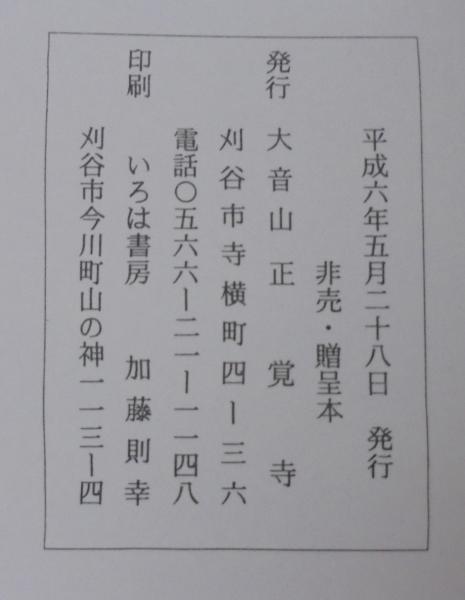 平成六年五月二十八日　発行
非売・贈呈本
発行　大音山　正　覚　寺
刈谷市寺横町四ー三六
電話〇五六六ー二一ー一一四八
印刷　いろは書房　加藤則幸
刈谷市今川町山の神一一三ー四